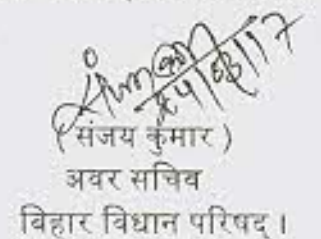 (संजय कुमार)
अवर सचिव
बिहार विधान परिषद् ।